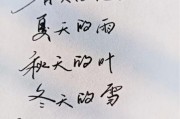 夏天的雨
秋天的叶
冬天的雪